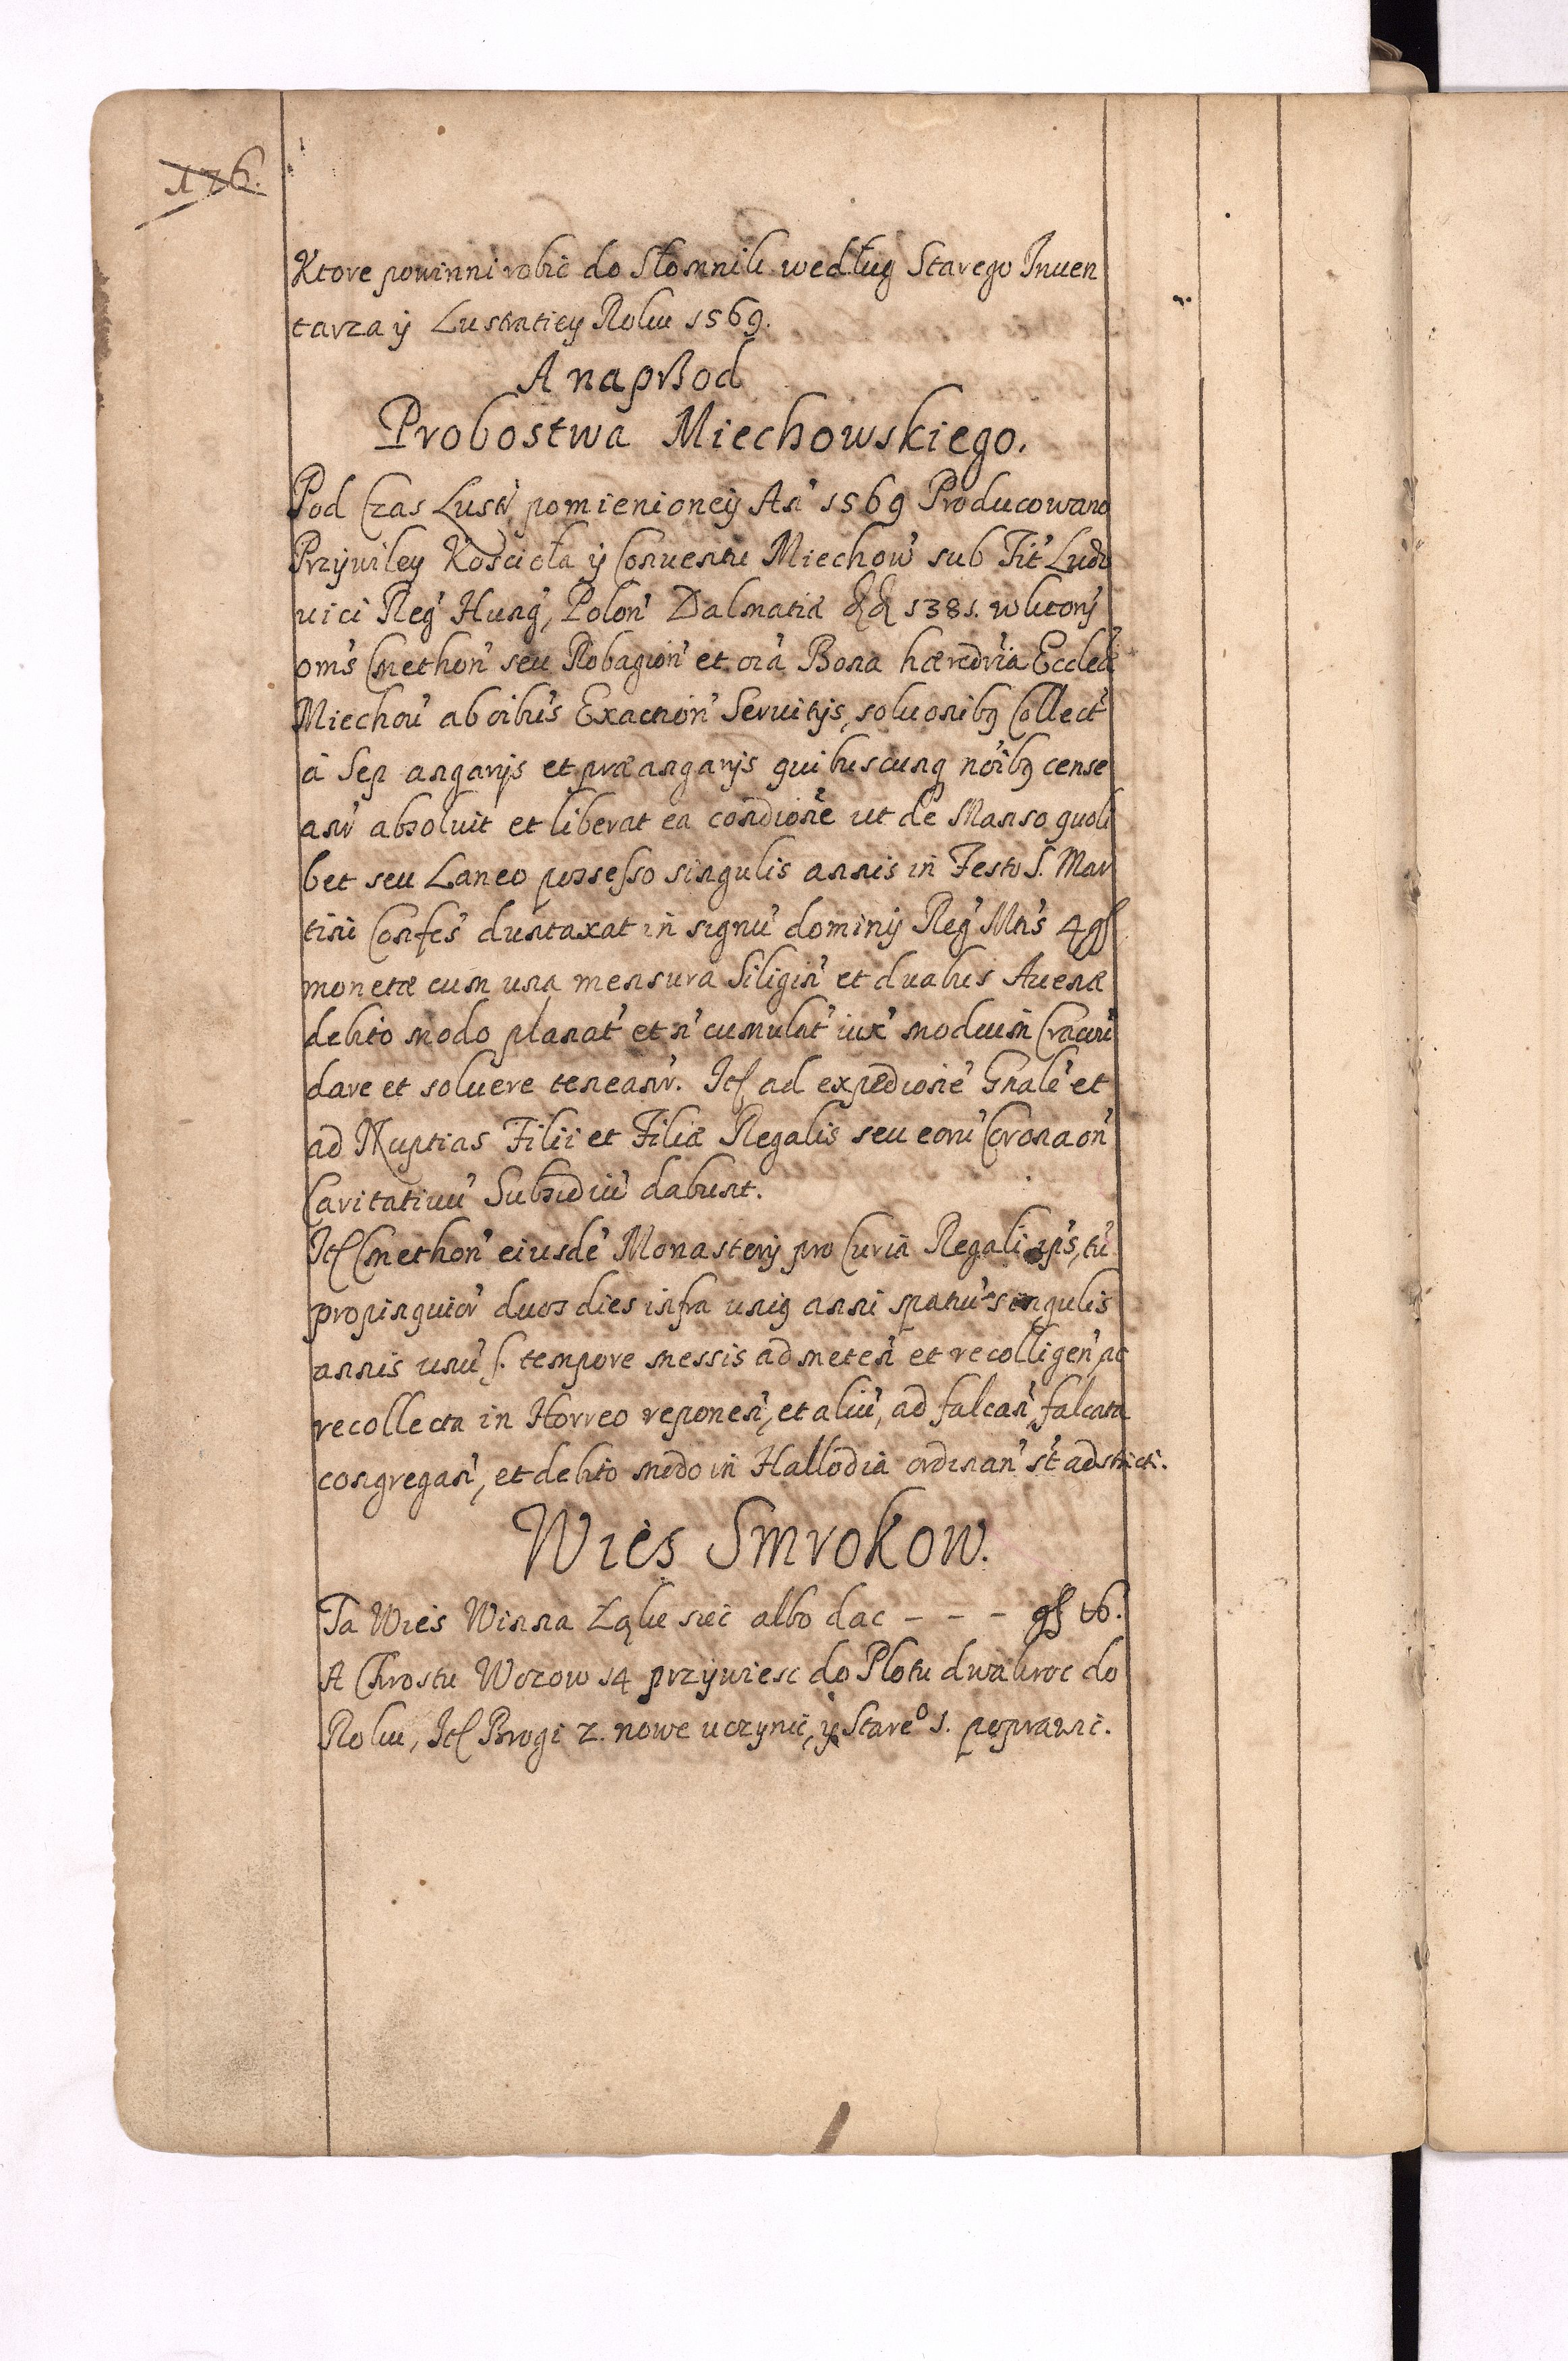 176.
Ktore powinni robić do Słomnik według Starego Inuen
tarza ÿ Lustratiey Roku 1569.
A naprßod
Probostwa Miechowskiego.
Pod Czas Lustr pomienioneÿ An' 1569 Producowano
Przÿwiley Kościoła ÿ Conuentu Miechow' sub Tit' Ludo
uici Reg' Hung', Polon' Dalmatiæ &c &c 1381. w ktorÿ
oms' Cmethon' seu Robagion' et oia' Bona hæredria' Eccleæ'
Miechou' ab oibus' Exaction' Seruitÿs, soluonibq Collect'
á Sep angarÿs et præangarÿs quibuscunq noibq cense
antr' absoluit et liberat ea condione' ut de Manso quoli
bet seu Laneo possesso singulis annis in Festo S. Mar
tini Confes' duntaxat in signu' dominÿ Reg' Mtis' 4 gł
monetæ cum una mensura Siligin' et duabus Auenæ
debito modo planat' et n' cumulat' iux' modum Cracou'
dare et soluere teneantr'. Itē ad expedione' Gnale' et
ad Nuptias Filii et Filiæ Regalis seu eoru' Coronaon'
Caritatiuu' Subsidiu' dabunt.
Itē Cmethon' eiusde' Monasterÿ pro Curia Regali ips', tu'
propinquior' duos dies infra uniq anni spatiu' singulis
annis unu' s. tempore messis ad meten' et recolligen' ac
recollecta in Horreo reponen', et aliu', ad falcan', falcata
congregan', et debito modo in Hallodia ordinan' st' adstricti.
Wieś Smrokow.
Ta Wieś Winna Łąkę siec albo dac - - - gł 16.
A Chrostu Wozow 14 przÿwiesc do Płotu dwakroc do
Roku, Itē Brogi 2. nowe uczÿnić, ÿ Stareo 1. poprawic.